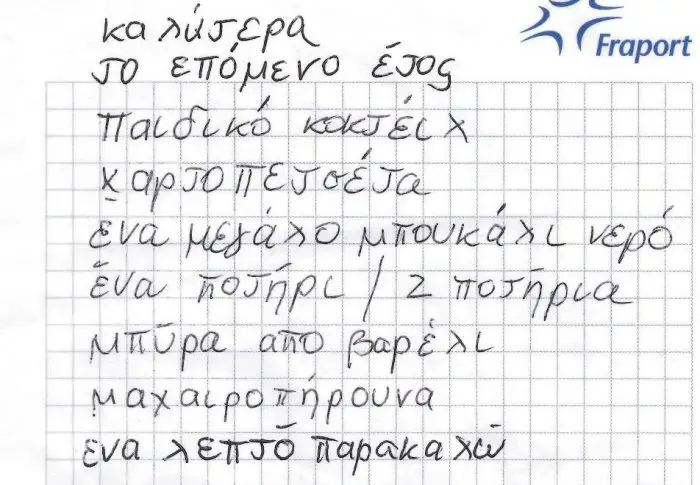 καλύτερα
Fraport
το επόμενο έτος
παιδικό κοκτέιλ
χαρτοπετσέτα
ένα μεγάλο μπουκάλι νερό
ένα ποτήρι / 2 ποτήρια
μπύρα από βαρέλι
μαχαιροπήρουνα
ένα λεπτό παρακαλώ